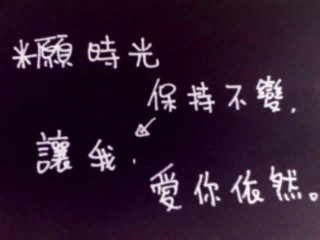 *願時光
保持不變,
讓我,
愛你依然。